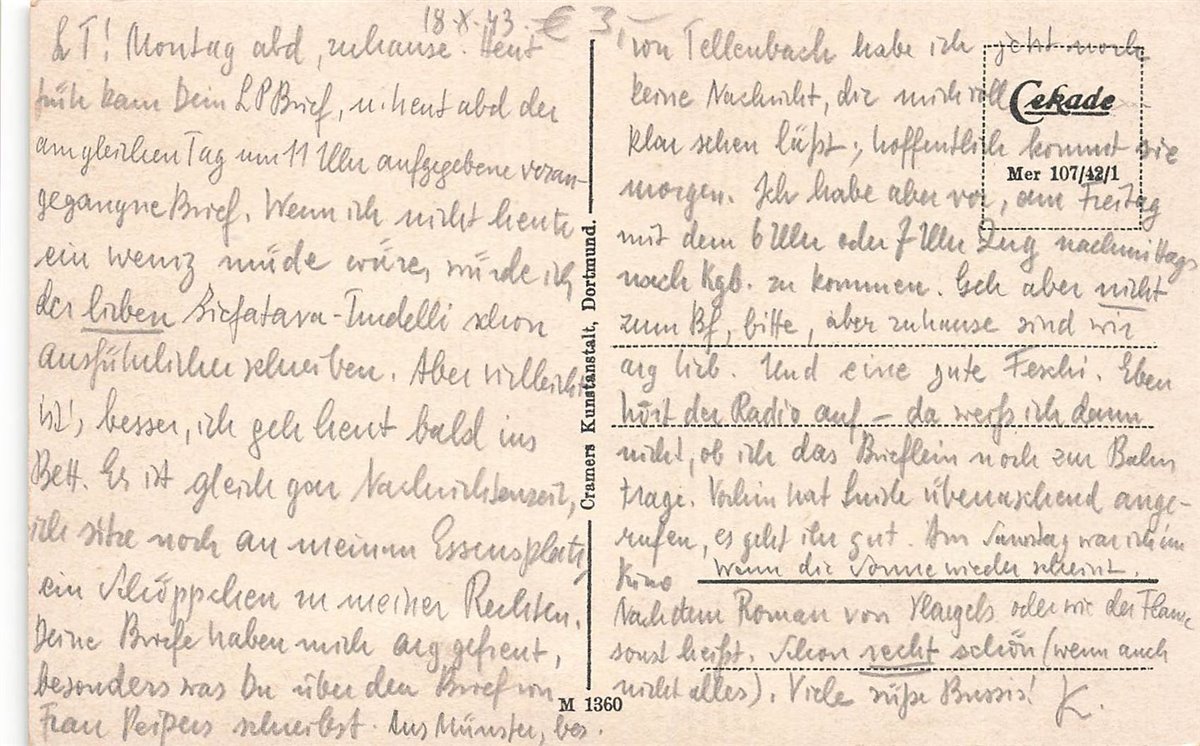 18.X.43. € 3,-
L T! Montag abd, zuhause. Heut
früh kam Dein LPBrief, u. heut abd der
am gleichen Tag um 11 Uhr aufgegebene voran-
gegangne Brief. Wenn ich nicht heute
ein wenig müde wäre, würde ich
der lieben schon
ausführlicher schreiben. Aber vielleicht
ist's besser, ich geh heut bald ins
Bett. Es ist gleich gar Nachrichtenzeit,
ich sitze noch an meinem Essensplatz,
ein Schöppchen zu meiner Rechten.
Deine Briefe haben mich arg gefreut,
besonders was Du über den Brief von
Frau Peipers schreibst. Aus Münster, bes.
von Tellenbach habe ich jetzt noch
keine Nachricht, die mich voll
klar sehen läßt; hoffentlich kommt sie
morgen. Ich habe aber vor, am Freitag
mit dem 6 Uhr oder 7 Uhr Zug nachmittags
nach Kgb. zu kommen. Geh aber nicht
zum Bf, bitte, aber zuhause sind wir
arg lieb. Und eine gute Feschi. Eben
hört der Radio auf – da weiß ich dann
nicht, ob ich das Brieflein noch zur Bahn
trage. Vorhin hat überraschend ange-
rufen, es geht ihr gut. Am Samstag war ich im
Kino Wenn die Sonne wieder scheint.
Nach dem Roman von oder wie der Flame
sonst heißt. Schon recht schön (wenn auch
nicht alles). Viele süße Bussis! K.
Cramers Kunstanstalt, Dortmund.
M 1360
Cekade
Mer 107/42/1